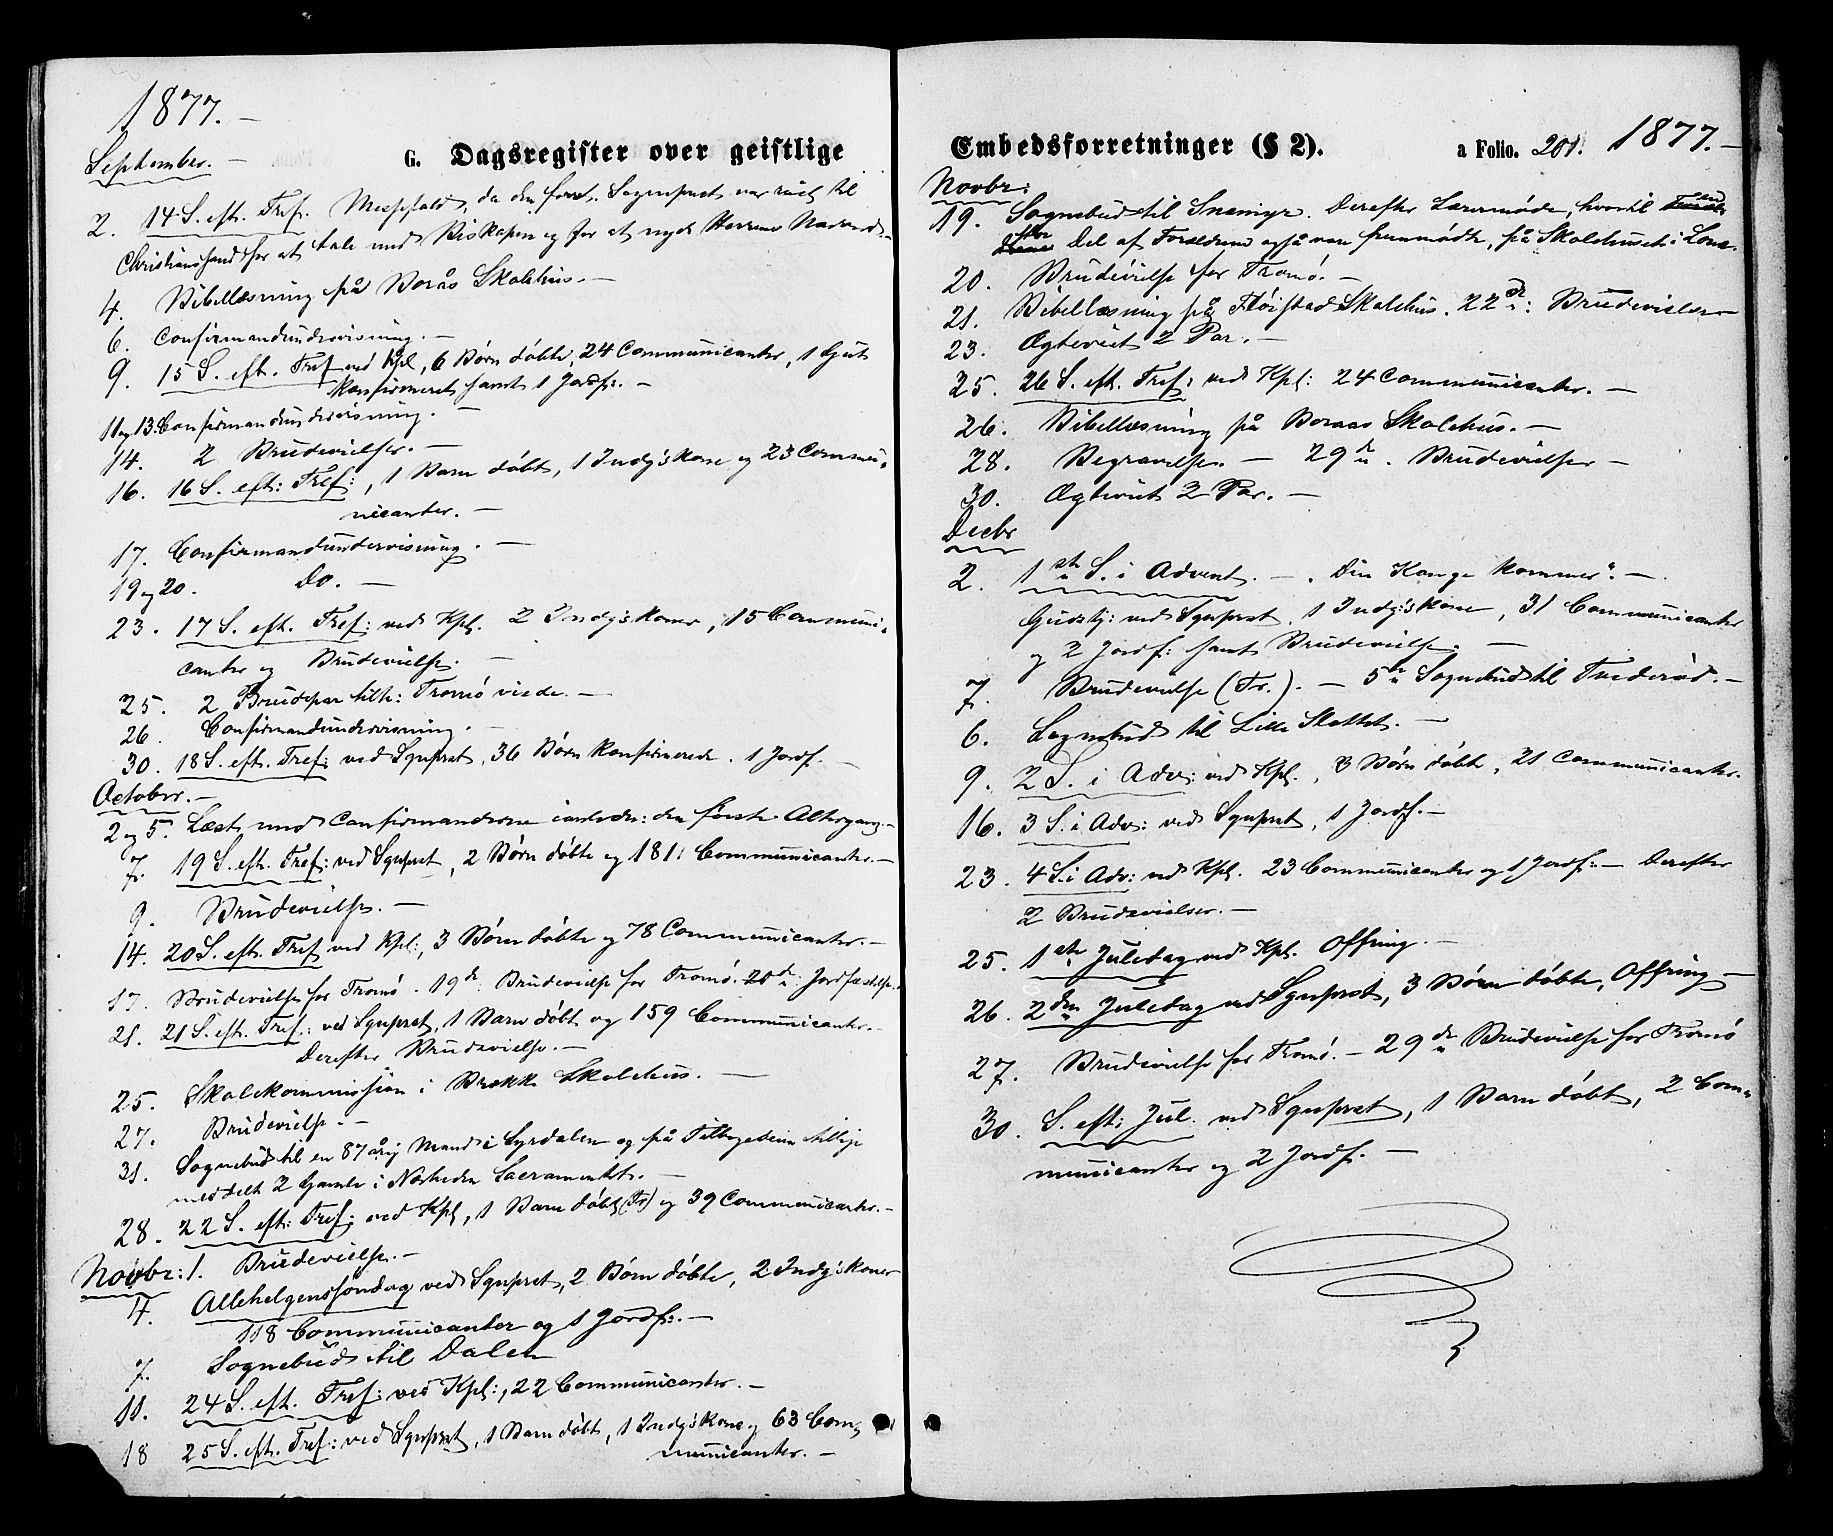 1877.-
September. -
G. Dagsregister over geistlige
2. 14. S. eft. Tref. Messefald, da den forr. Sogneprest var reist til
Christianssand for at tale med Biskopen og for at nyde Herrens Nadverd. -
4. Bibellæsning på Borås Skolehus. -
6. Confirmandundervisning. -
9. 15 S. eft. Tref ved Kpl, 6 Børn døbte, 24 Communicanter, 1 Gut
konfirmeret samt 1 Jordf:. -
11 og 13. Confirmandundervisning. -
14. 2 Brudevielser. -
16. 16 S. eft: Tref:, 1 Barn døbt, 1 Indg's kone og 23 Commu-
nicanter. -
17. Confirmandundervisning. -
19 og 20. Do. -
23. 17 S. eft. Tref: ved Kpl. 2 Indg's koner, 15 Communi-
canter og Brudevielse. -
25. 2 Brudepar tilh: Tromø viede. -
26. Confirmandundervisning. -
30. 18 S. eft. Tref: ved Sgnprst, 36 Børn konfirmerede. 1 Jordf. -
October. -
2 og 5. Læst med Confirmanderne den første Altergang. -
7. 19 S. eft. Tref: ved Sgnprst, 2 Børn døbte og 181 Communicanter. -
9. Brudevielse. -
14. 20 S. eft. Tref ved Kpl:, 3 Børn døbte og 78 Communicanter. -
17. Brudevielse for Tromø. 19de Brudevielse for Tromø. 20de Jordfæstelse.
21. 21 S. eft. Tref: ved Sgnprst, 1 Barn døbt og 159 Communicanter. -
Derefter Brudevielse. -
25. Skolekommission i Brække Skolehus. -
27. Brudevielse. -
31. Sognebud til en 87 årig Mand i Lyrdalen og på Tilbageveien tillige
meddelt 2 Gamle i Nærheden Sacramentet. -
28. 22 S. eft: Tref: ved Kpl, 1 Barn døbt (Tr) og 39 Communicanter. -
Novbr: 1. Brudevielse. -
4. Allehelgenssøndag ved Sgnprst, 2 Børn døbte, 2 Indg's koner
118 Communicanter og 1 Jordf:. -
7. Sognebud til Dalen
11. 24 S. eft. Tref: ved Kpl:, 22 Communicanter. -
18 25 S. eft. Tref: ved Sgnprst, 1 Barn døbt, 1 Indg's kone og 63 Com-
municanter. -
Embedsforretninger (§ 2).
a Folio. 201.
1877. -
Novbr:
19. Sognebud til Snemyr. Derefter Lærermøde, hvortil en
stor Del af Forældrene også vare fremmødte, på Skolehuset i
20. Brudevielse for Tromø. -
21. Bibellæsning på Fløistad Skolehus. 22de: Brudevielser -
23. Ægteviet 2 Par. -
25. 26 S. eft. Tref: ved Kpl: 24 Communicanter. -
26. Bibellæsning på Boraas Skolehus. -
28. Begravelse. - 29de. Brudevielse -
30. Ægteviet 2 Par. -
Decbr
2. 1ste S. i Advent. - "Din Konge kommer". -
Gudstj: ved Sgnprst, 1 Indg's kone, 31 Communicanter
og 2 Jordf: samt Brudevielse. -
7. Brudevielse (Tr.). - 5te Sognebud til Tvederød. -
6. Sognebud til Lille Slottet. -
9. 2 S. i Adv: ved Kpl., 3 Børn døbte, 21 Communicanter.
16. 3 S. i Adv: ved Sgnprst, 1 Jordf. -
23. 4 S. i Adv: ved Kpl. 23 Communicanter og 1 Jordf: - Derefter
2 Brudevielser. -
25. 1ste Juledag ved Kpl. Offring. -
26. 2den Juledag ved Sgnprst, 3 Børn døbte, Offring -
27. Brudevielse for Tromø. - 29de Brudevielse for Tromø
30. S. eft: Jul. ved Sgnprst, 1 Barn døbt, 2 Com-
municanter og 2 Jordf. -